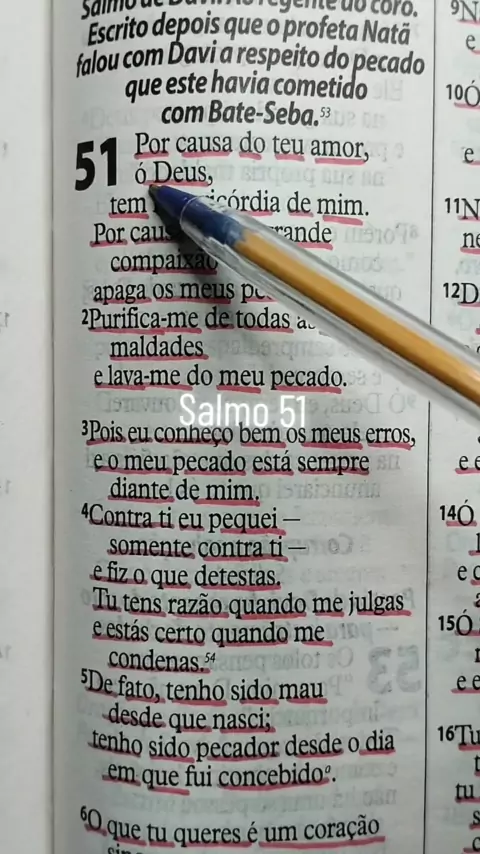 Salmo de Davi. Ao regente do coro.
Escrito depois que o profeta Natã
falou com Davi a respeito do pecado
que este havia cometido
com Bate-Seba.⁵³
51 Por causa do teu amor,
ó Deus,
tem icórdia de mim.
Por cau rande
compaixão
apaga os meus pe
²Purifica-me de todas as
maldades
e lava-me do meu pecado.
Salmo 51
³Pois eu conheço bem os meus erros,
e o meu pecado está sempre
diante de mim.
⁴Contra ti eu pequei —
somente contra ti —
e fiz o que detestas.
Tu tens razão quando me julgas
e estás certo quando me
condenas.⁵⁴
⁵De fato, tenho sido mau
desde que nasci;
tenho sido pecador desde o dia
em que fui concebidoᵒ.
⁶O que tu queres é um coração
⁹N
e
¹⁰Ó
e
¹¹N
ne
¹²D
e e
¹⁴Ó
e c
¹⁵Ó
e e
¹⁶Tu
t
tu
s